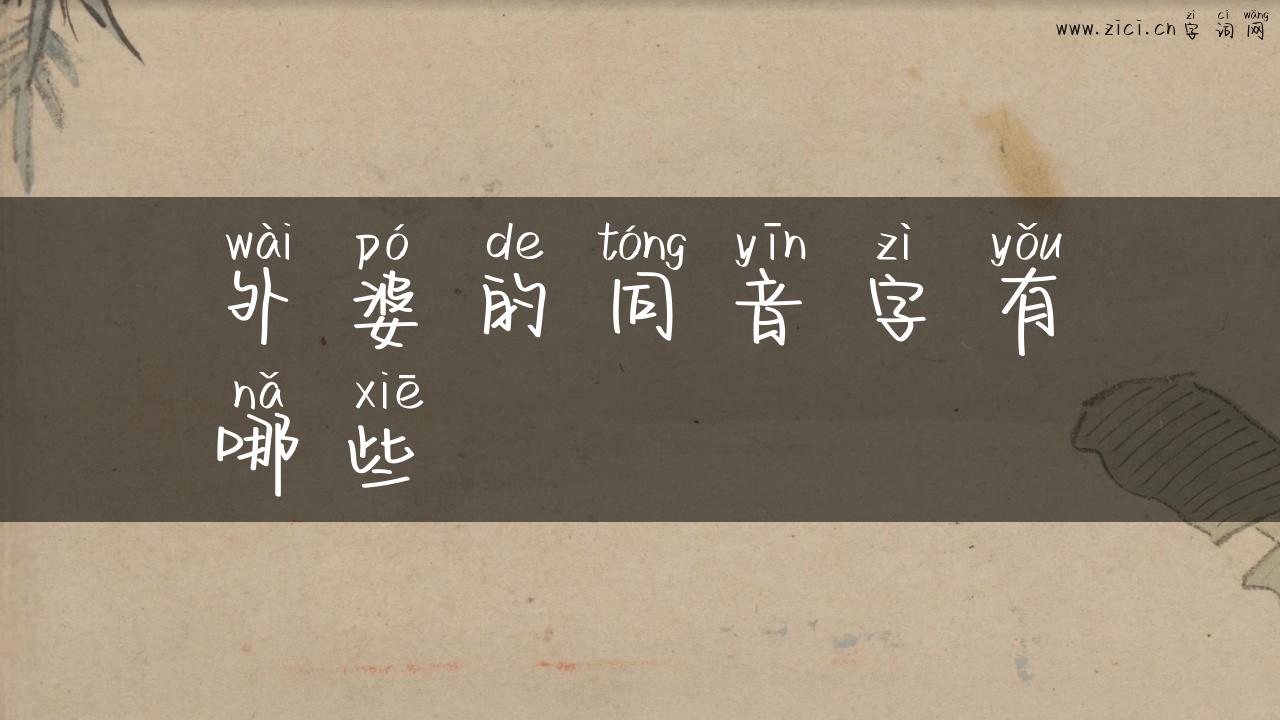 zì cí wǎng
www.zici.cn 字 词 网
wài pó de tóng yīn zì yǒu
外 婆 的 同 音 字 有
nǎ xiē
哪 些